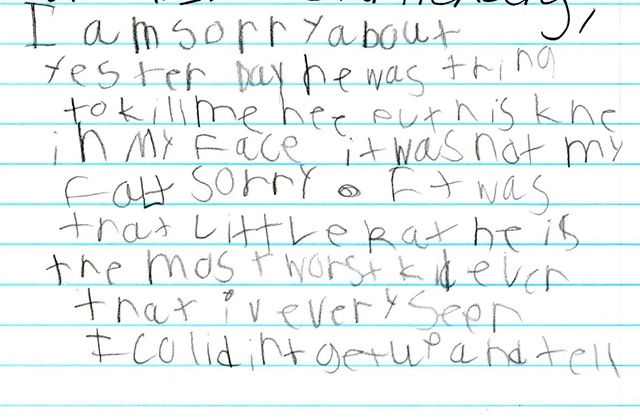 I am sorry about
yester Day he was tring
to kill me he put his kne
in my Face it was not my
Falt sorry. It was
that Little Rat he is
the most worst kid ever
that i'v every seen
I colidint get up and tell